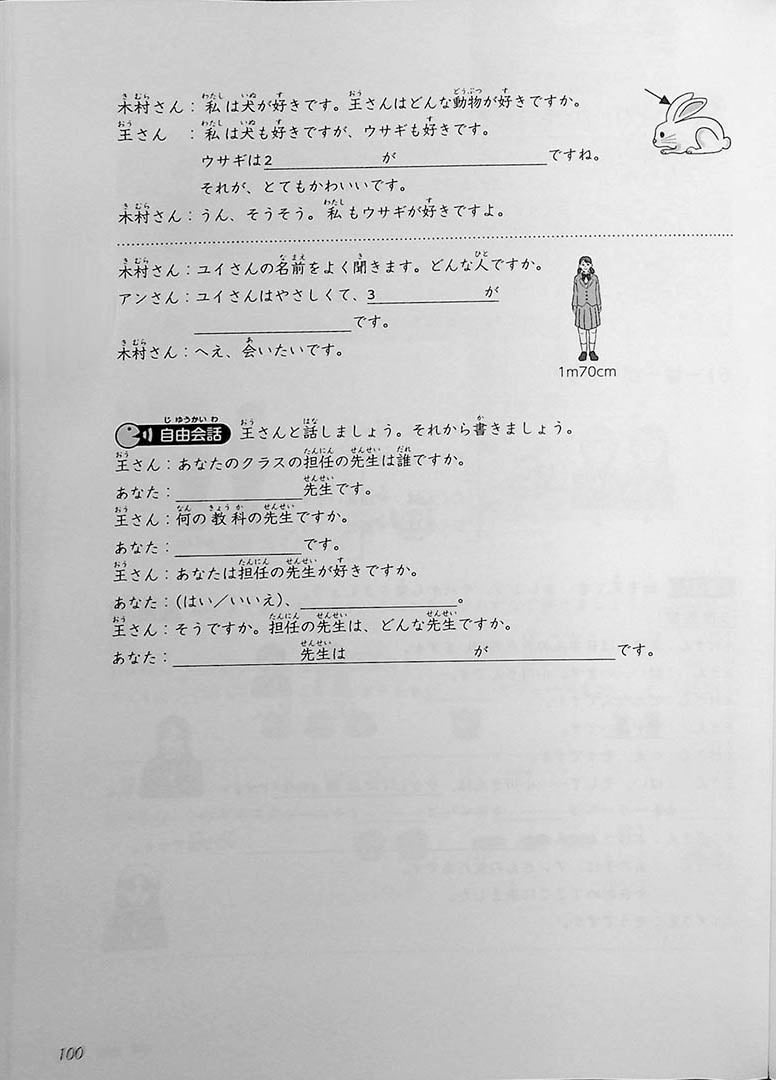 木村さん：私は犬が好きです。王さんはどんな動物が好きですか。
王さん　：私は犬も好きですが、ウサギも好きです。
ウサギは2＿＿＿＿＿が＿＿＿＿＿ですね。
それが、とてもかわいいです。
木村さん：うん、そうそう。私もウサギが好きですよ。
木村さん：ユイさんの名前をよく聞きます。どんな人ですか。
アンさん：ユイさんはやさしくて、3＿＿＿＿＿が
＿＿＿＿＿です。
木村さん：へえ、会いたいです。
1m70cm
自由会話　王さんと話しましょう。それから書きましょう。
王さん：あなたのクラスの担任の先生は誰ですか。
あなた：＿＿＿＿＿先生です。
王さん：何の教科の先生ですか。
あなた：＿＿＿＿＿です。
王さん：あなたは担任の先生が好きですか。
あなた：（はい／いいえ）、＿＿＿＿＿。
王さん：そうですか。担任の先生は、どんな先生ですか。
あなた：＿＿＿＿＿先生は＿＿＿＿＿が＿＿＿＿＿です。
100